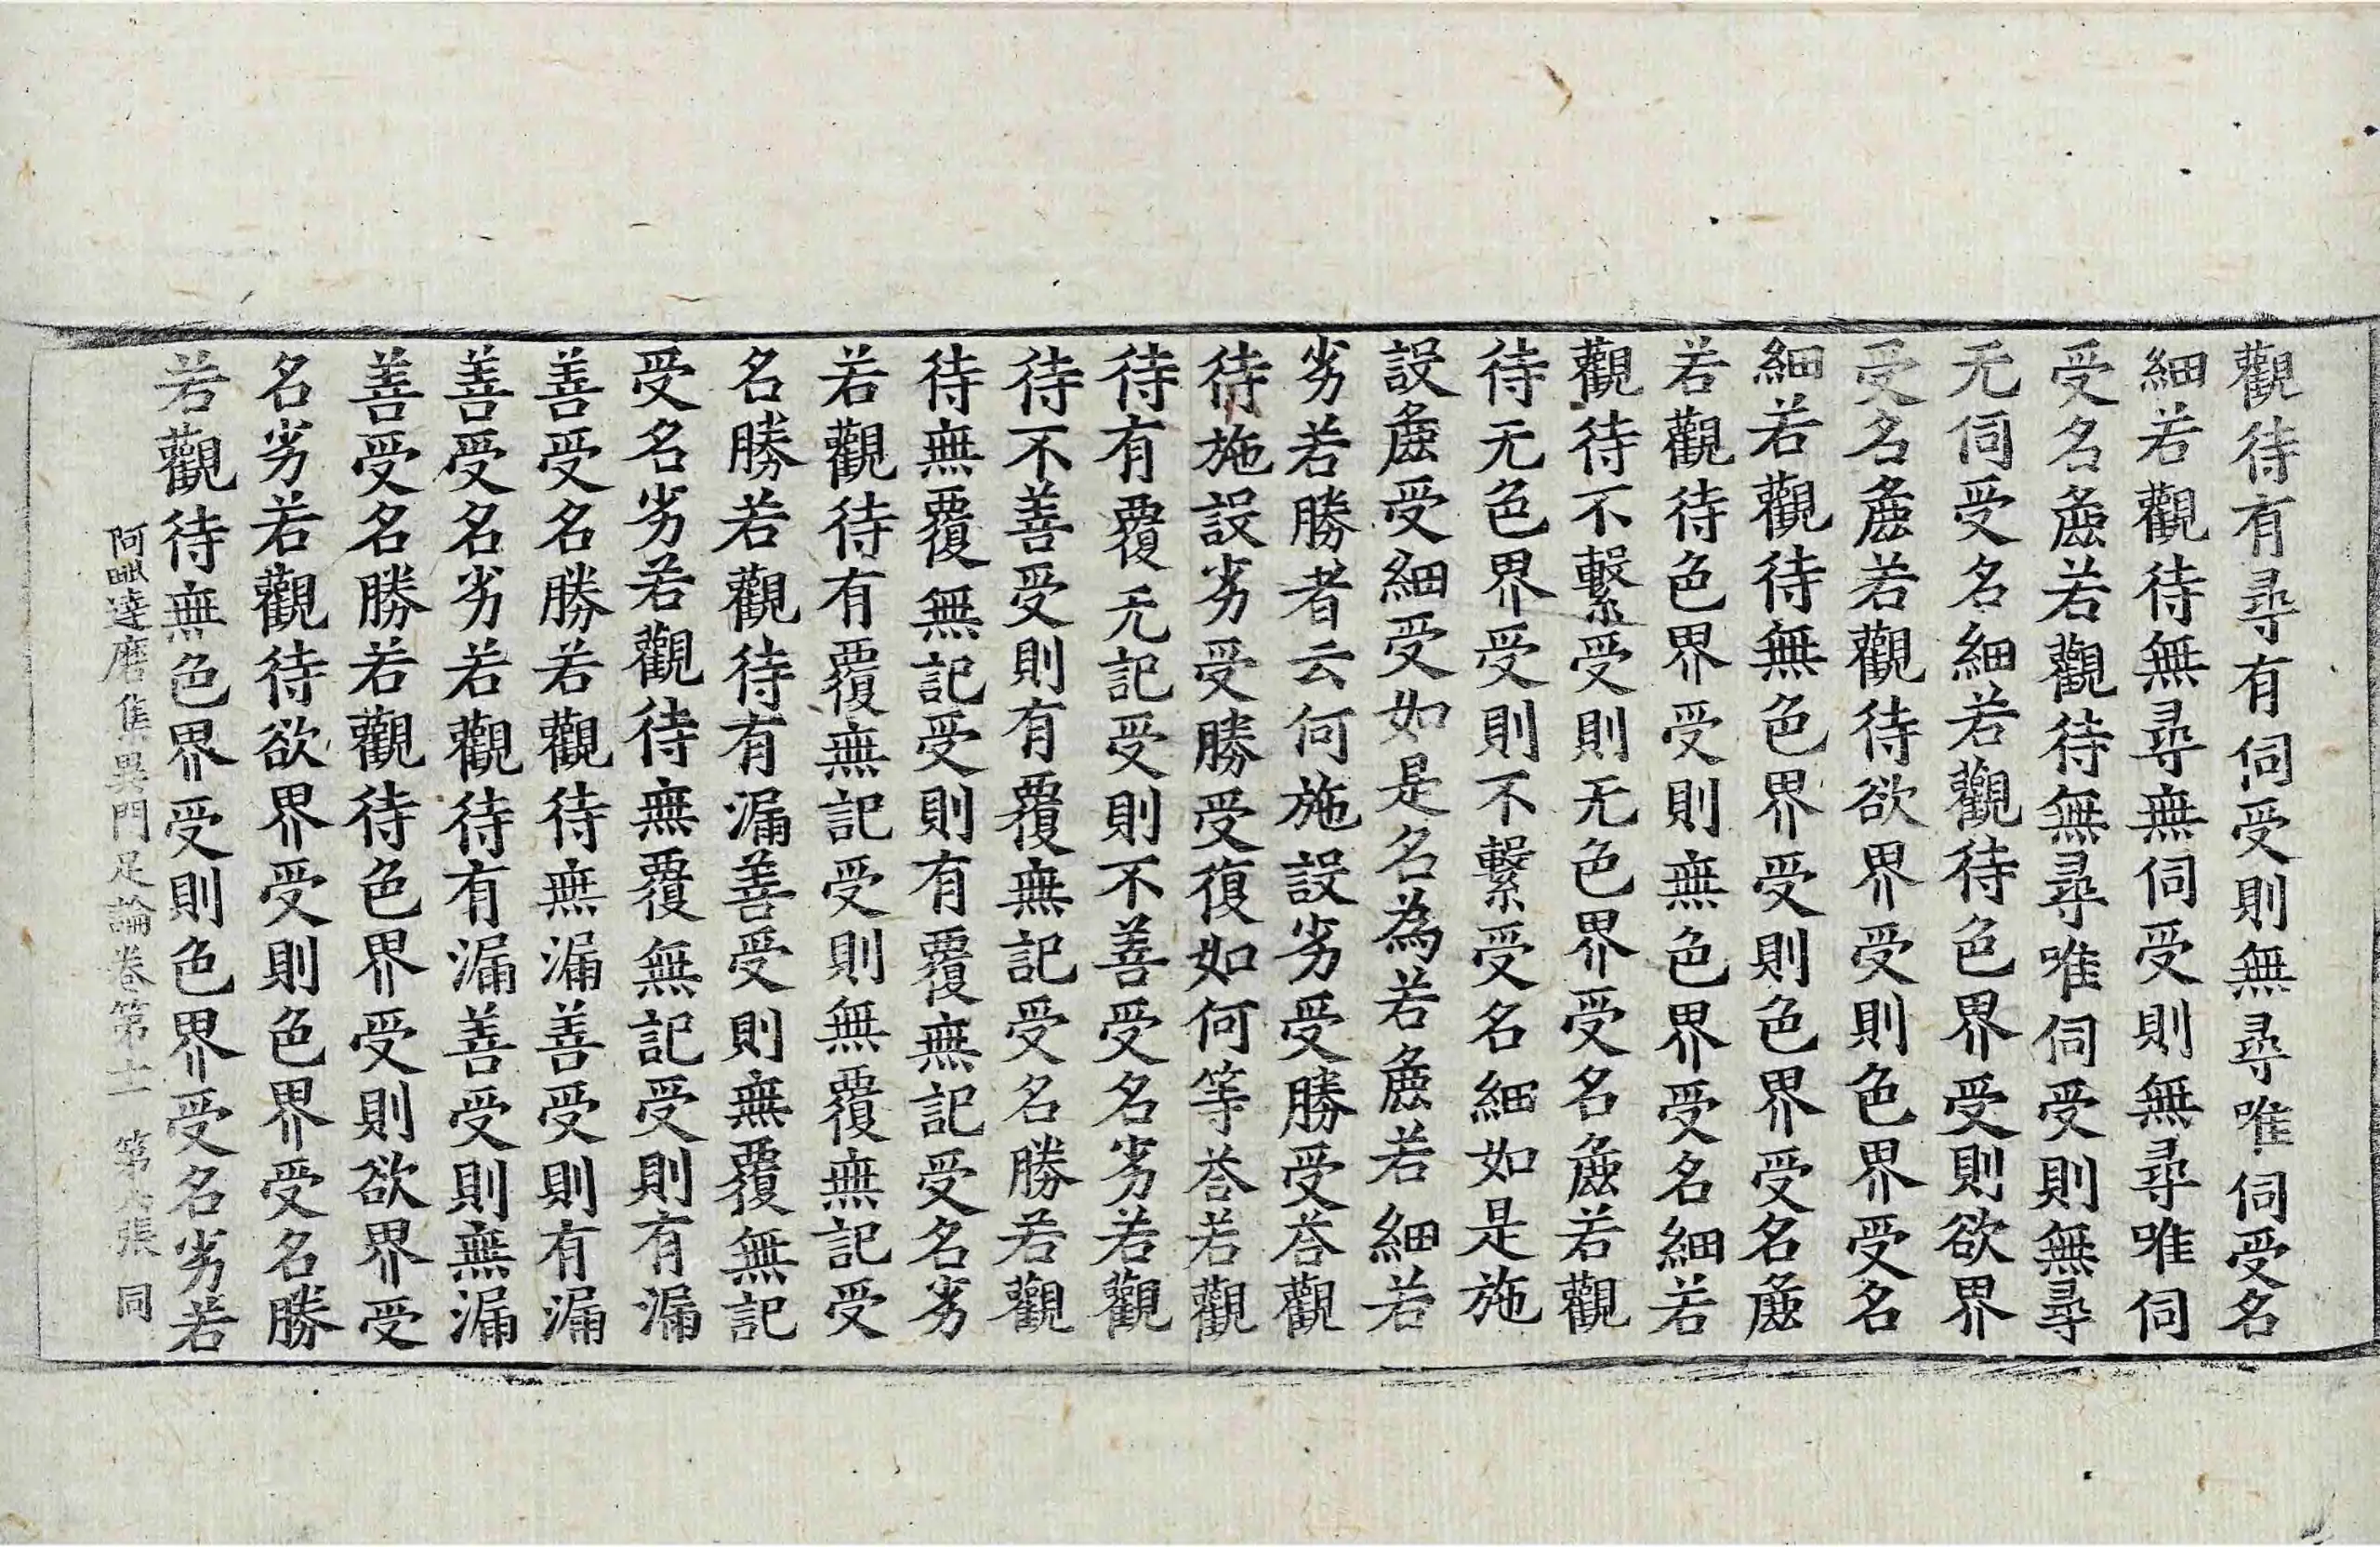 觀待有尋有伺受則無尋唯伺受名
細若觀待無尋無伺受則無尋唯伺
受名麁若觀待無尋唯伺受則無尋
无伺受名細若觀待色界受則欲界
受名麁若觀待欲界受則色界受名
細若觀待無色界受則色界受名麁
若觀待色界受則無色界受名細若
觀待不繫受則无色界受名麁若觀
待无色界受則不繫受名細如是施
設麁受細受如是名為若麁若細若
劣若勝者云何施設劣受勝受荅觀
待施設劣受勝受復如何等荅若觀
待有覆无記受則不善受名劣若觀
待不善受則有覆無記受名勝若觀
待無覆無記受則有覆無記受名劣
若觀待有覆無記受則無覆無記受
名勝若觀待有漏善受則無覆無記
受名劣若觀待無覆無記受則有漏
善受名勝若觀待無漏善受則有漏
善受名劣若觀待有漏善受則無漏
善受名勝若觀待色界受則欲界受
名劣若觀待欲界受則色界受名勝
若觀待無色界受則色界受名劣若
阿毗達磨集異門足論卷第十一 第六張 同